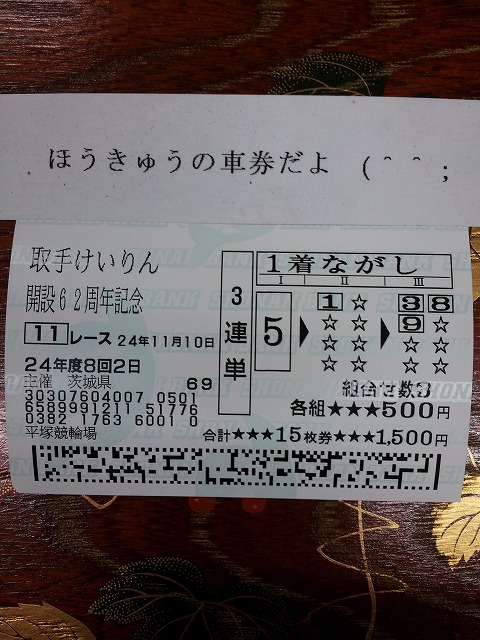 ほうきゅうの車券だよ (^ ^;
取手けいりん
開設62周年記念
11レース 24年11月10日
24年度8回2日
主催 茨城県 69
30307604007 0501
6589991211 51776
0382 1763 6001 0
平塚競輪場
3連単
1着ながし
I II III
5 ▶ 1 ☆ ▶ 3 8
☆ ☆ 9 ☆
☆ ☆ ☆ ☆
☆ ☆ ☆ ☆
組合せ数3
各組★★★500円
合計★★★15枚券★★★1,500円